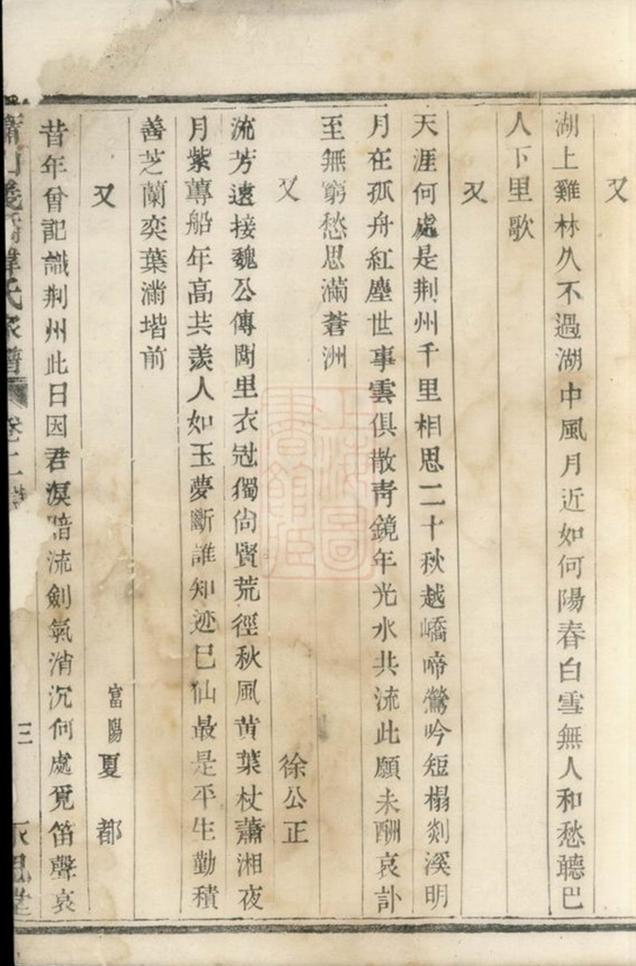 又
湖上雞林久不過湖中風月近如何陽春白雪無人和愁聽巴
人下里歌
又
天涯何處是荆州千里相思二十秋越嶠啼鶯吟短榻剡溪明
月在孤舟紅塵世事雲俱散靑鏡年光水共流此願未酬哀訃
至無窮愁思滿蒼洲
又 徐公正
流芳遠接魏公傳閭里衣冠獨尙賢荒徑秋風黄葉杖蕭湘夜
月紫蓴船年高共羨人如玉夢斷誰知迹巳仙最是平生勤積
善芝蘭奕葉滿堦前
又 富陽夏 都
昔年曾記識荆州此日因君淚暗流劍氣消沉何處覓笛聲哀
蕭山義橋韓氏家譜 卷二 三
上海圖書館藏